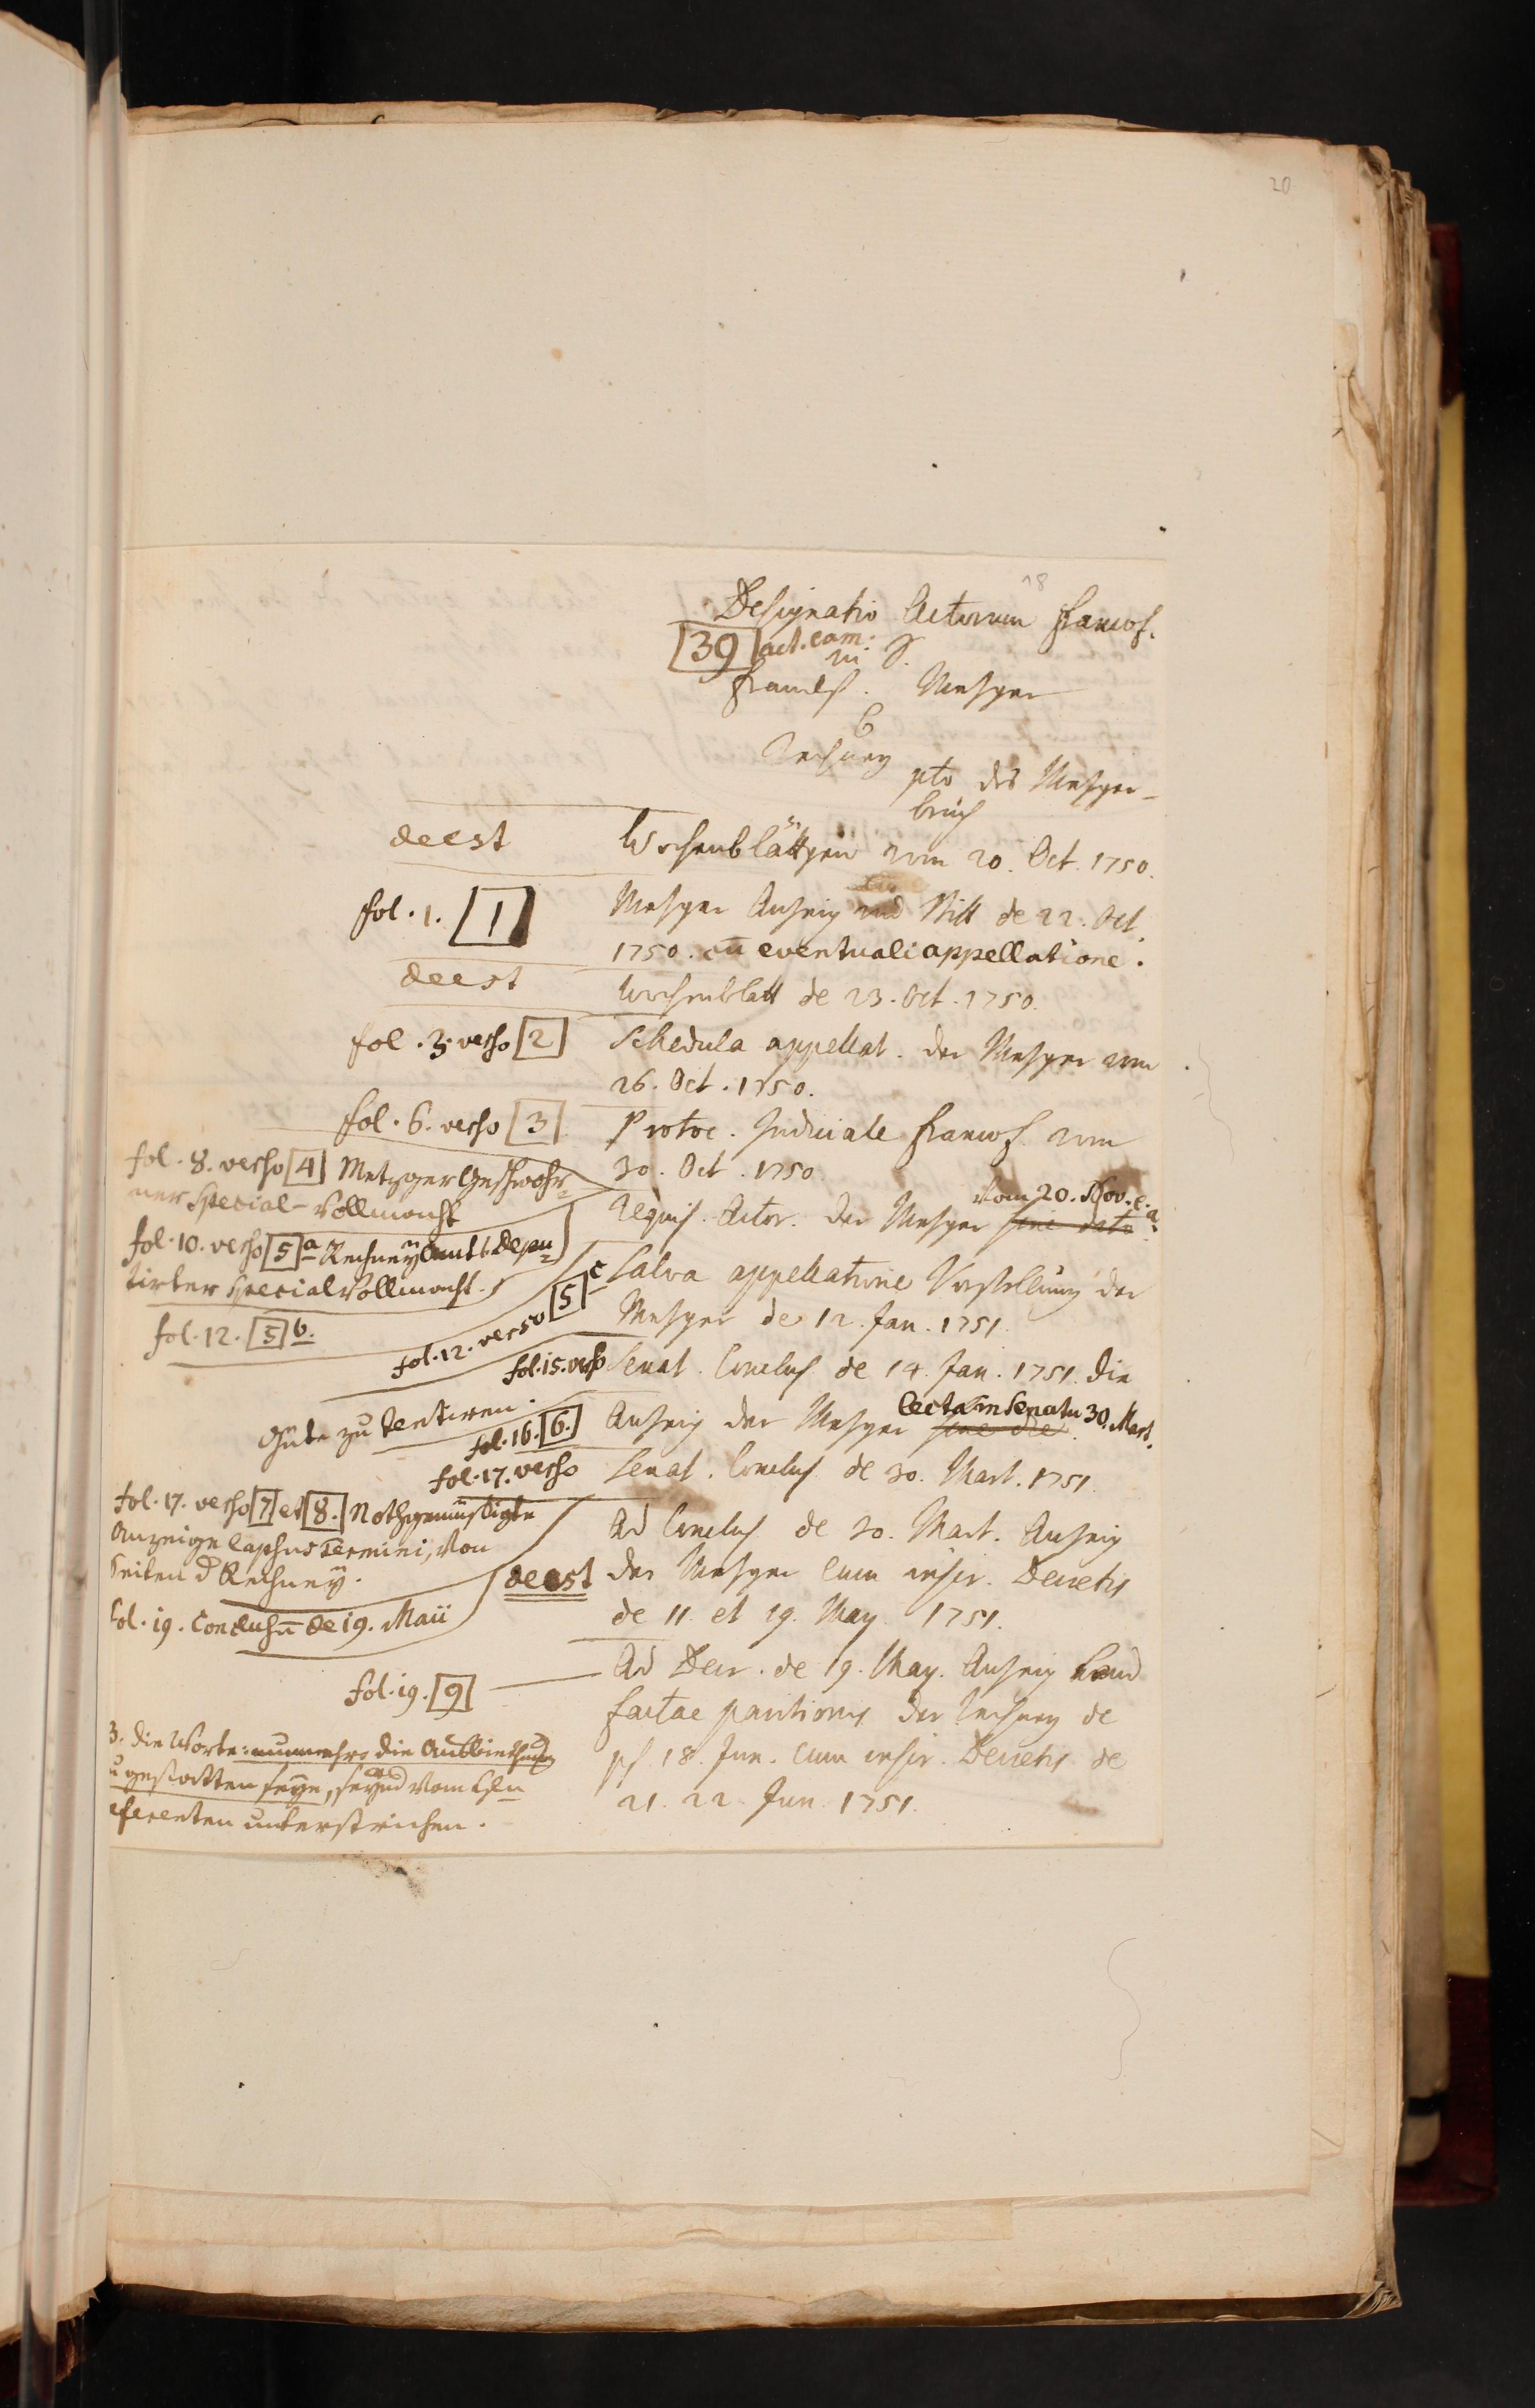 20
18
Designatio Actorum Francof.
39 act. cam.
in S.
Francf. Metzger
C
Rechney
pto des Metzger-
bruch
deest
Wochenblättgen vom 20. Oct. 1750.
fol. 1. 1
Metzger Anzeig und Bitt de 22. Oct.
1750. cū eventuali appellatione.
deest
Wochenblatt de 23. Oct. 1750.
fol. 3. verso 2
Schedula appellat. der Metzger vom
26. Oct. 1750.
fol. 6. verso 3
Protoc. Judiciale Francof. vom
30. Oct. 1750.
fol. 8. verso 4 Metzger Geschwohr=
ner Special-Vollmacht
vom 20. Nov. e. a.
Requis. Actor. der Metzger sine dato
fol. 10. verso 5 a Rechney Amts Depu=
tirter Special Vollmacht.
fol. 12. 5 b.
fol. 12. verso 5 c
Salva appellatione Vorstellung der
Metzger de 12. Jan. 1751.
fol. 15. verso
Senat. Conclus. de 14. Jan. 1751. die
Güte zu tentiren.
fol. 16. 6.
lecta in Senatu 30. Mart.
Anzeig der Metzger sine die.
fol. 17. verso
Senat. Conclus. de 30. Mart. 1751.
fol. 17. verso 7 et 8. Nothgemüßigte
Anzeige lapsus Termini, von
Seiten d Rechney.
deest
Ad Conclus. de 30. Mart. Anzeig
der Metzger cum inser. Decretis
de 11. et 19. May 1751.
fol. 19. Conclusū de 19. Maii
fol. 19. 9
Ad Decr. de 19. May. Anzeig haud
factae paritionis der Rechney de
ps. 18. Jun. cum inser. Decretis de
21. 22. Jun. 1751.
B. die Worte: nunmehro die Ausbiethung
zu gestatten seye, seynd vom Hn
referenten unterstrichen.